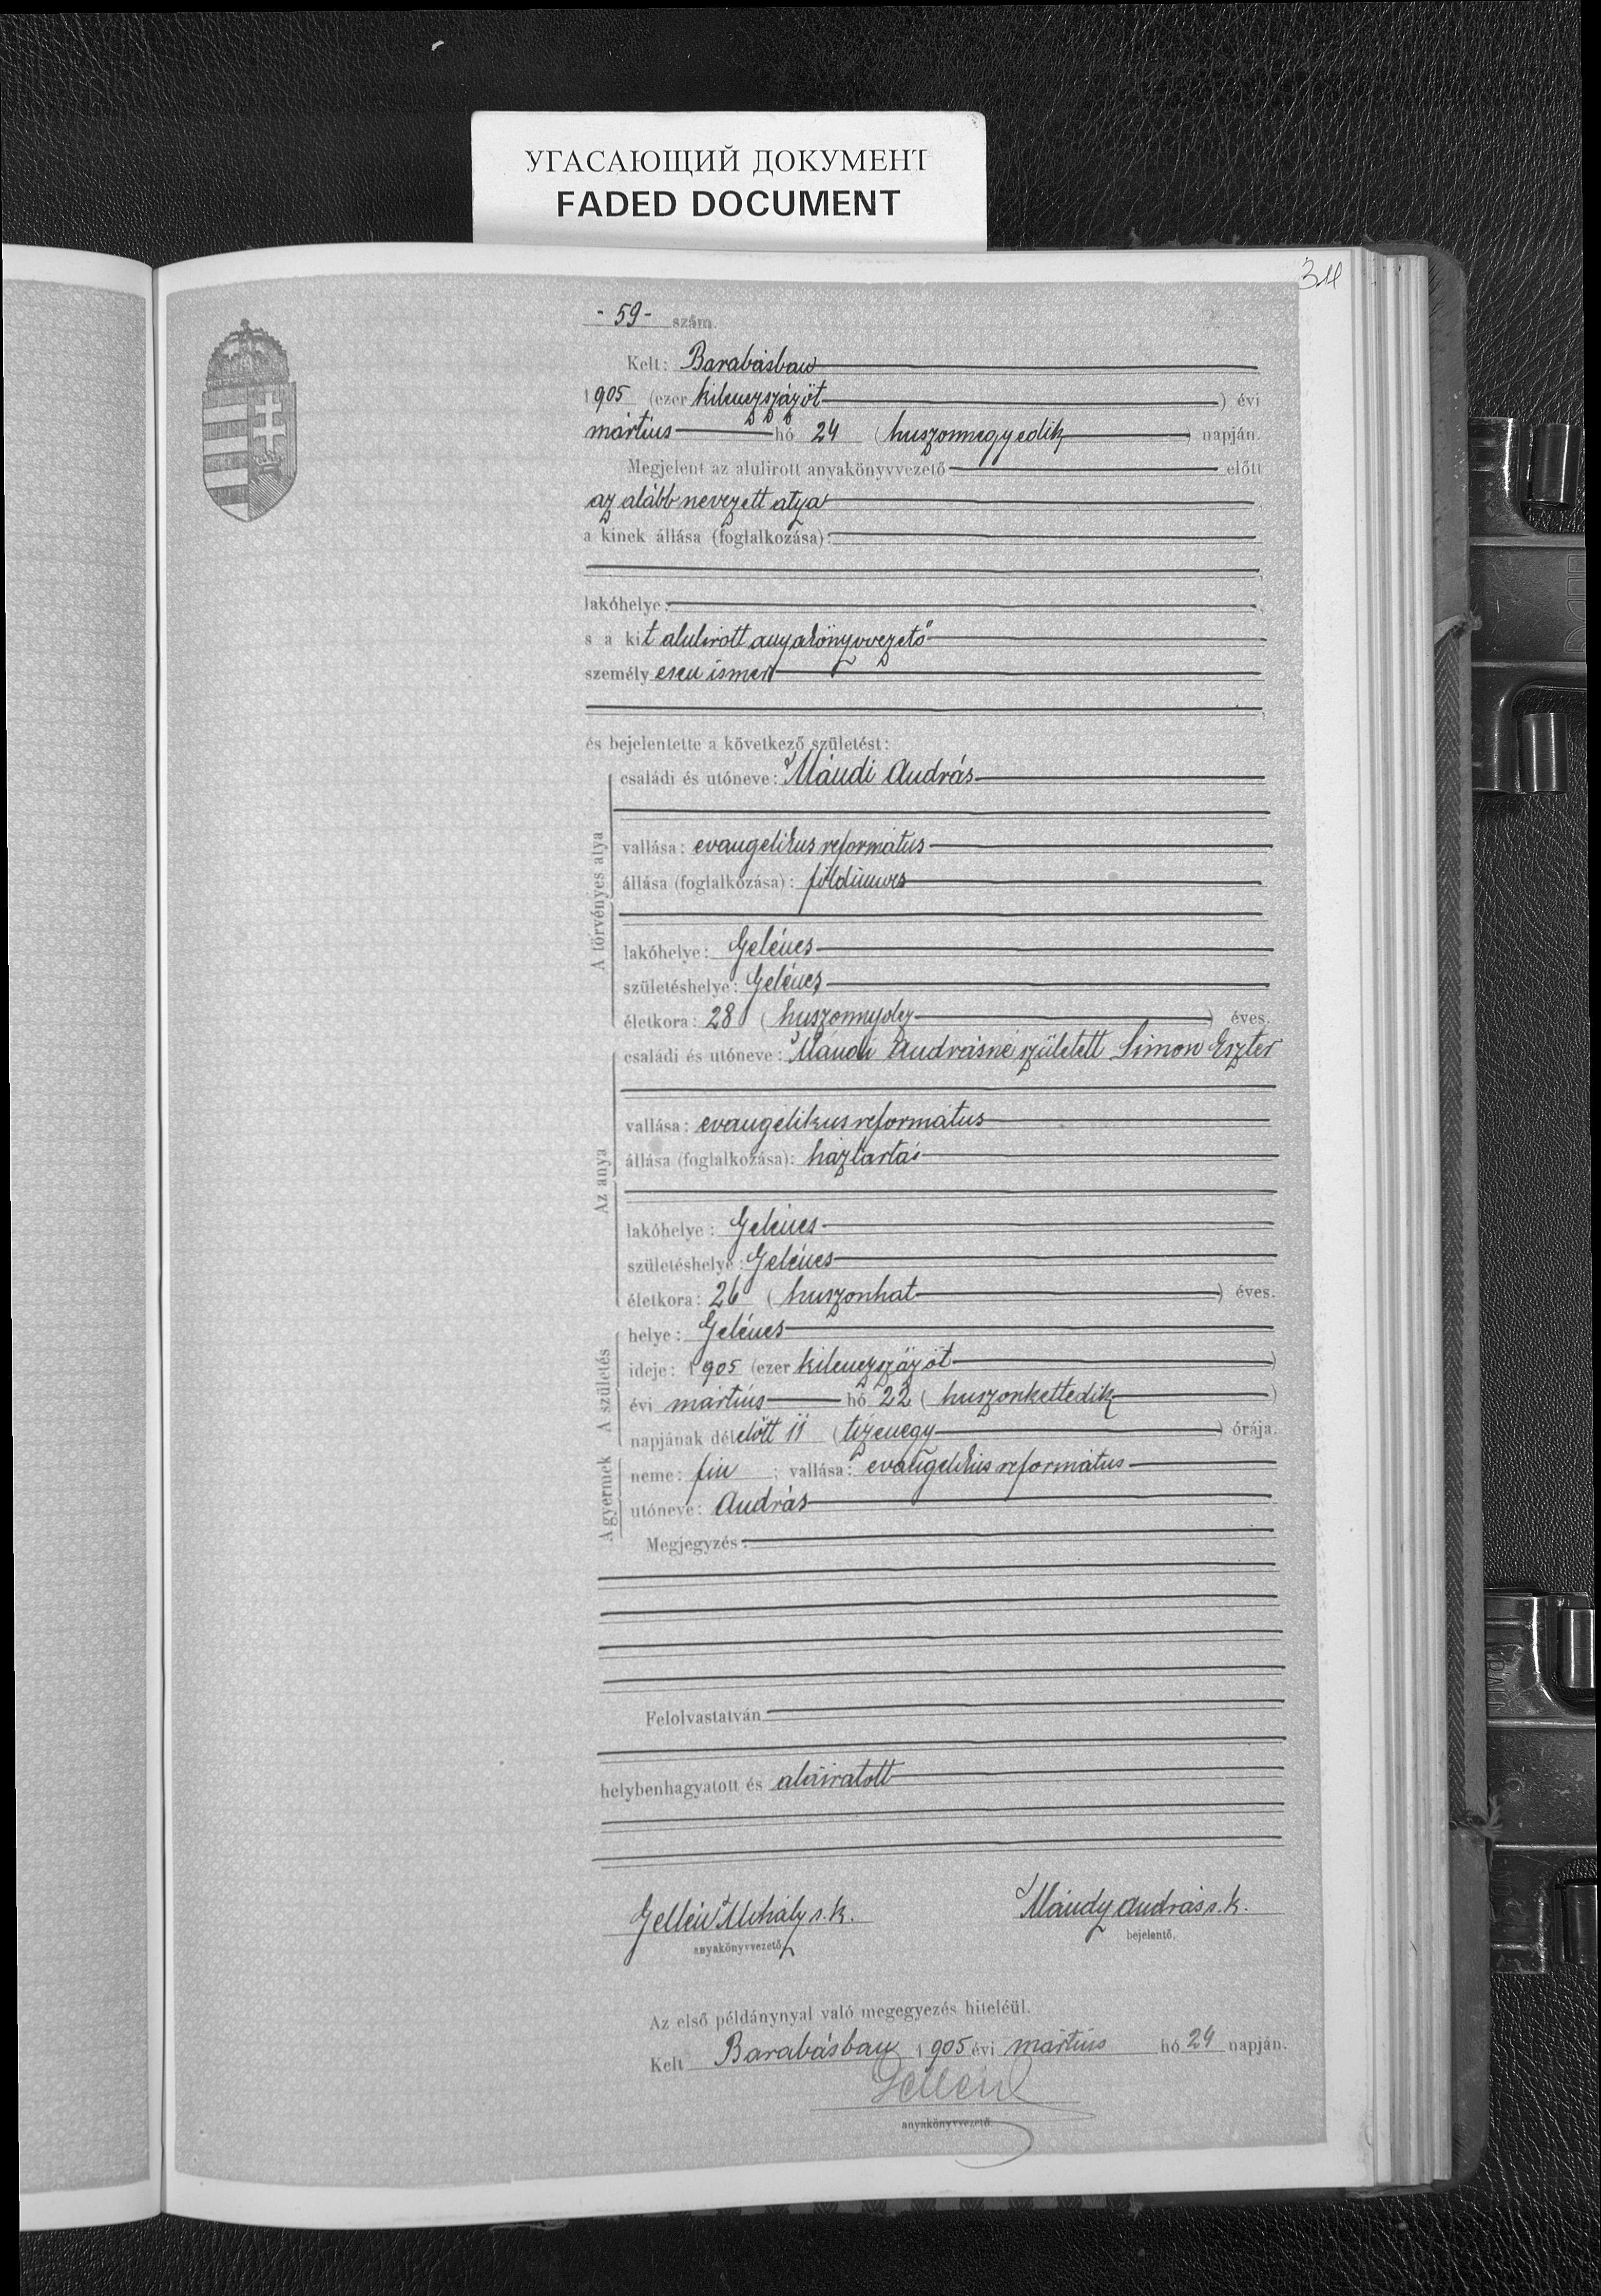 УГАСАЮЩИЙ ДОКУМЕНТ
FADED DOCUMENT
- 59 - szám.
Kelt: Barabásban
1905 (ezer kilenczszázöt) évi
mártius hó 24 (huszonnegyedik) napján.
Megjelent az alulirott anyakönyvvezető előtt
az alább nevezett atya
a kinek állása (foglalkozása):
lakóhelye:
s a kit alulirott anyakönyvvezető
személyesen ismer
és bejelentette a következő születést:
A törvényes atya
családi és utóneve: Mándi András
vallása: evangelikus református
állása (foglalkozása): földmives
lakóhelye: Gelénes
születéshelye: Gelénes
életkora: 28 (huszonnyolcz) éves.
Az anya
családi és utóneve: Mándi Andrásné született Simon Eszter
vallása: evangelikus református
állása (foglalkozása): háztartás
lakóhelye: Gelénes
születéshelye: Gelénes
életkora: 26 (huszonhat) éves.
A születés
helye: Gelénes
ideje: 1905 (ezer kilenczszázöt)
évi mártius hó 22 (huszonkettedik)
napjának délelőtt 11 (tizenegy) órája.
A gyermek
neme: fiu ; vallása: evangelikus református
utóneve: András
Megjegyzés:
Felolvastatván
helybenhagyatott és aláiratott
Gellén Mihály s. k. Mándy András s. k.
anyakönyvvezető. bejelentő.
Az első példánynyal való megegyezés hiteléül.
Kelt Barabásban 1905 évi mártius hó 24 napján.
Gellén
anyakönyvvezető.